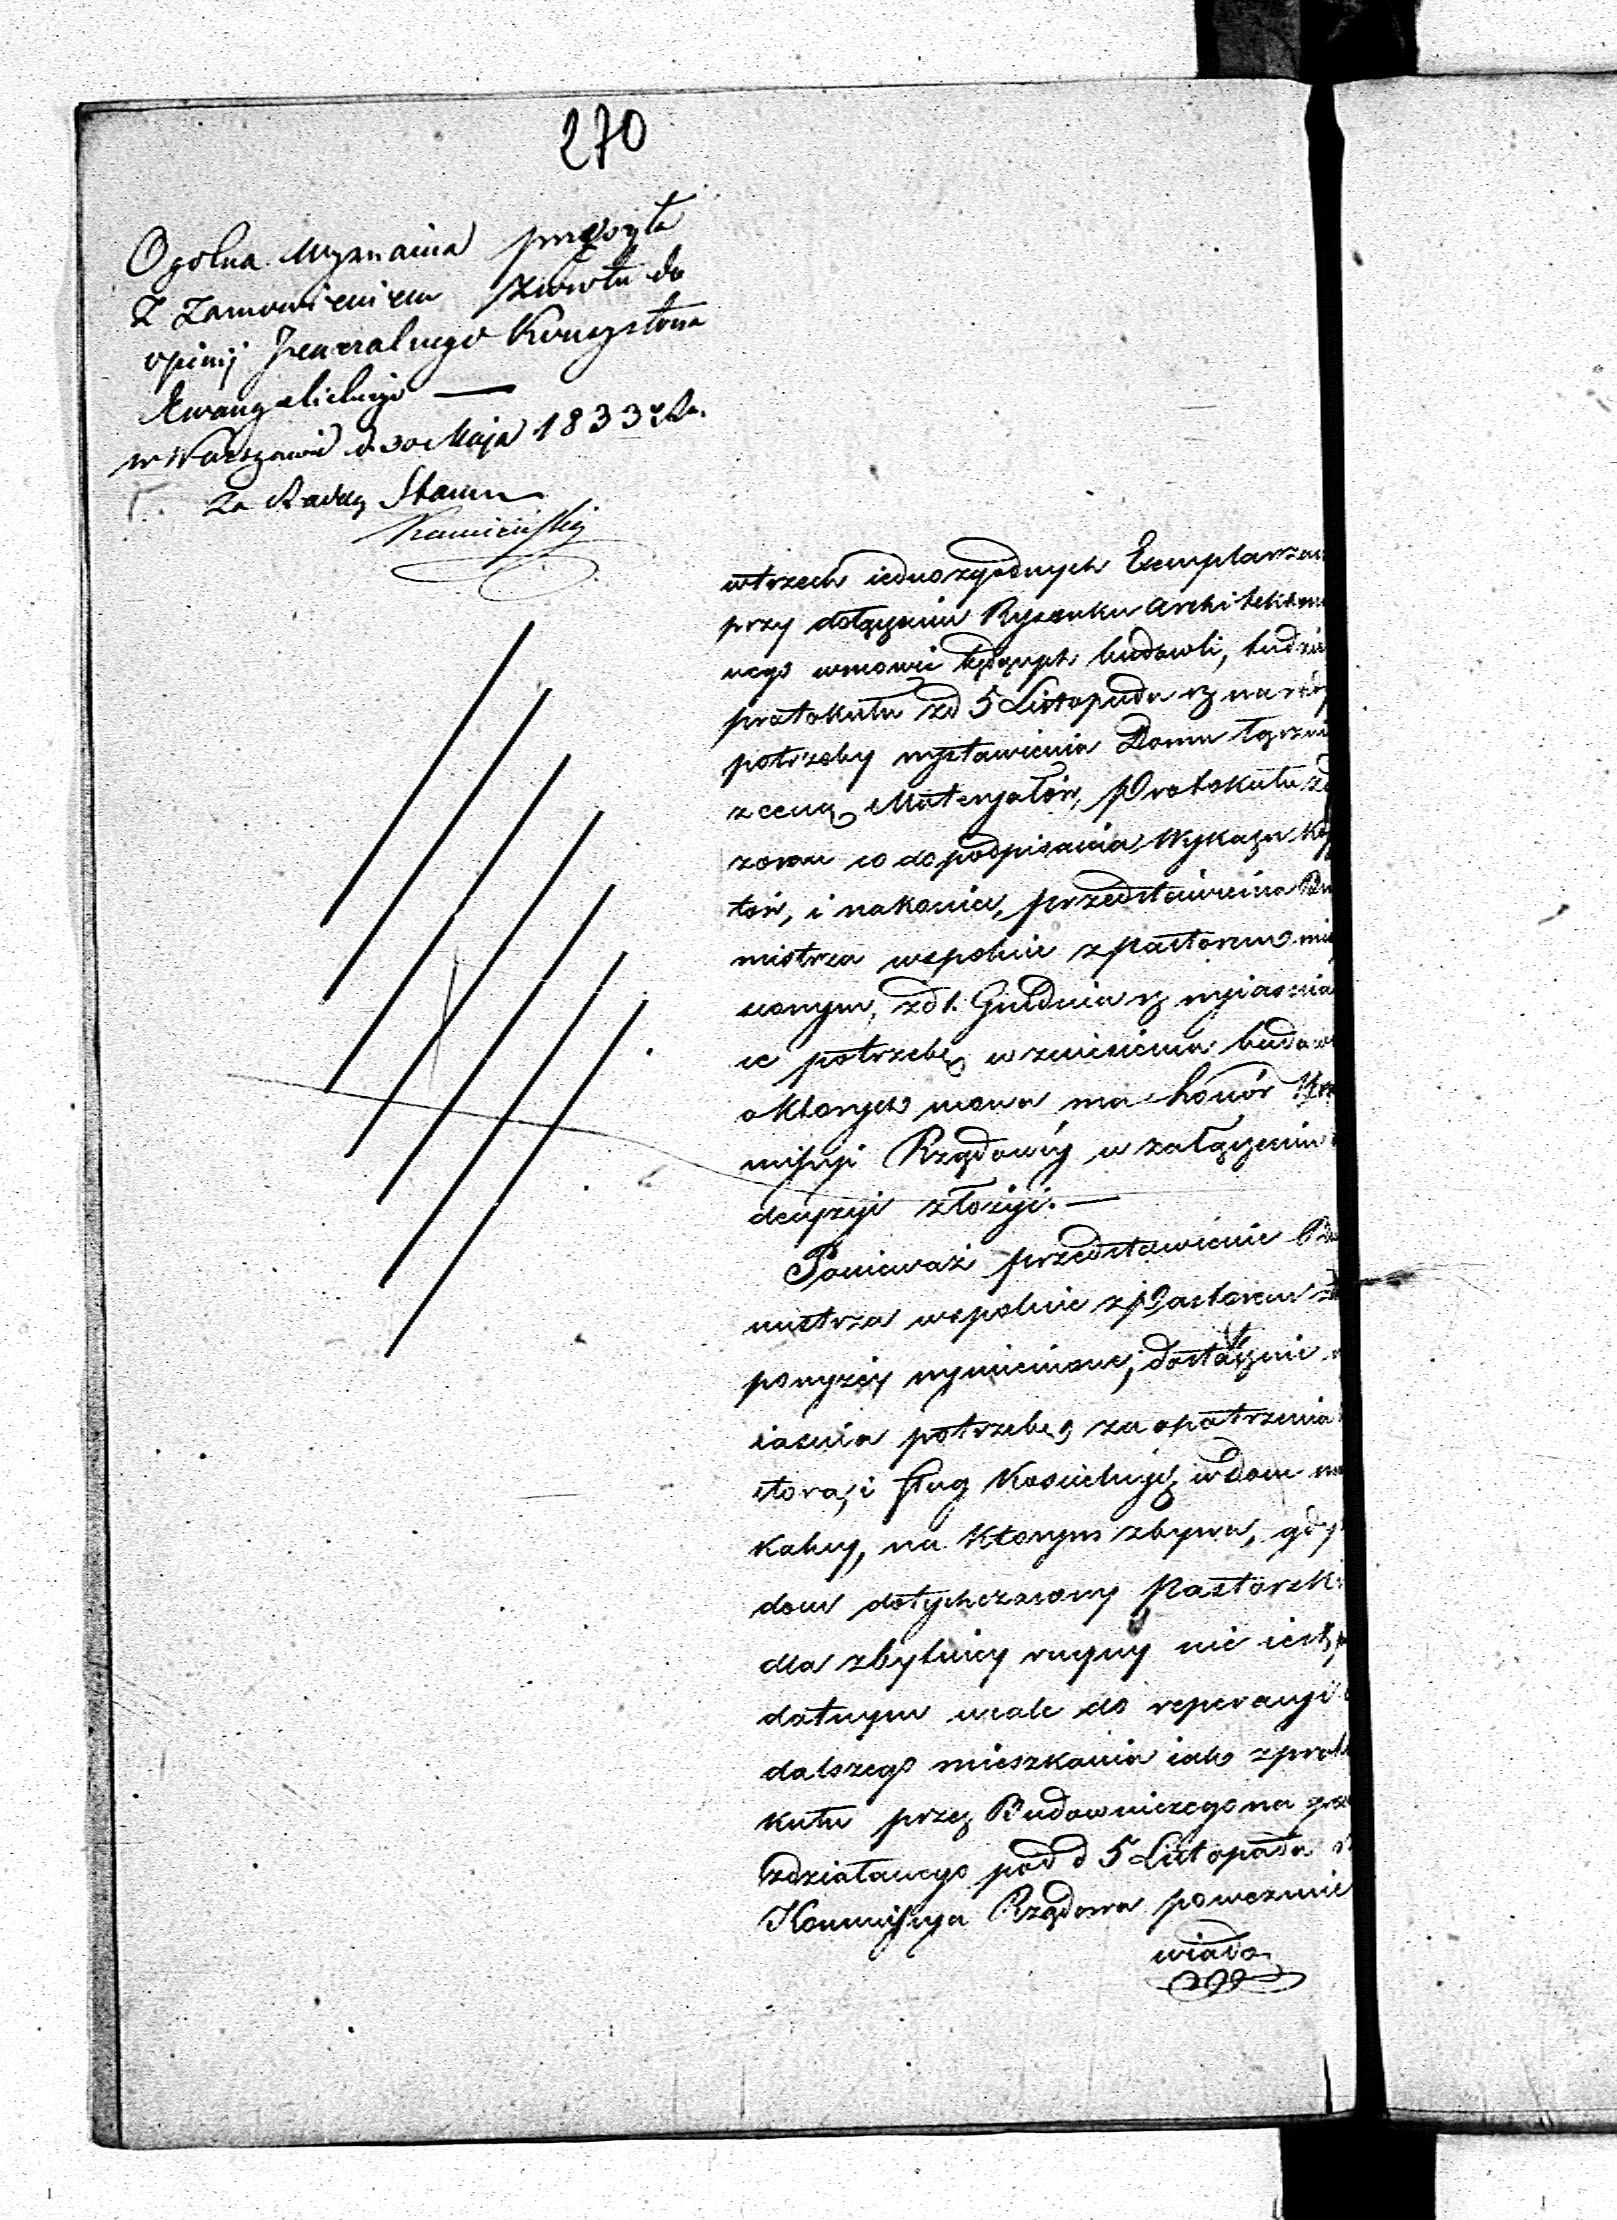 270
Ogolna Wyznania przesyła
z zamowieniem zwrotu do
opinij Jeneralnego Konsystorza
Ewangelickiego —
w Warszawie d. 30 Maja 1833 r.
Za Radcę Stanu
Kamieński
wtrzech iednozgodnych Exemplarzac
przy dołączeniu Rysunku Architekton
nego wmowie będących budowli, tudzie
protokułu zd 5 Listopada rz na
potrzeby wystawienia Domu łącznie
zceną Materyałów, Protokułu
co do podpisania Wykazu
tów, i nakoniec, przedstawienia Bu
mistrza wspolnie zPastorem
zd 1. Grudnia rz wyiasnia
ce potrzebę wzniesienia budow
oktorych mowa ma honór Kom
missyi Rządowéy wzałączeniu
decyzyi złożyć. —
Ponieważ przedstawienie Bu
mistrza wspolnie zPastorem
powyżéy wymienione, dostatecznie
iasnia potrzebę zaopatrzenia
stora, i sług Koscielnych wdom
kalny, na ktorym zbywa, gdy
dom dotychczasowy Pastorski
dla zbytniey ruyny nie iest
datnym wcale do reperacyi
dalszego mieszkania iak zproto
kułu przez Budowniczego na
zdziałanego pod d 5 Listopada
Kommissya Rządowa powezmie
wiado